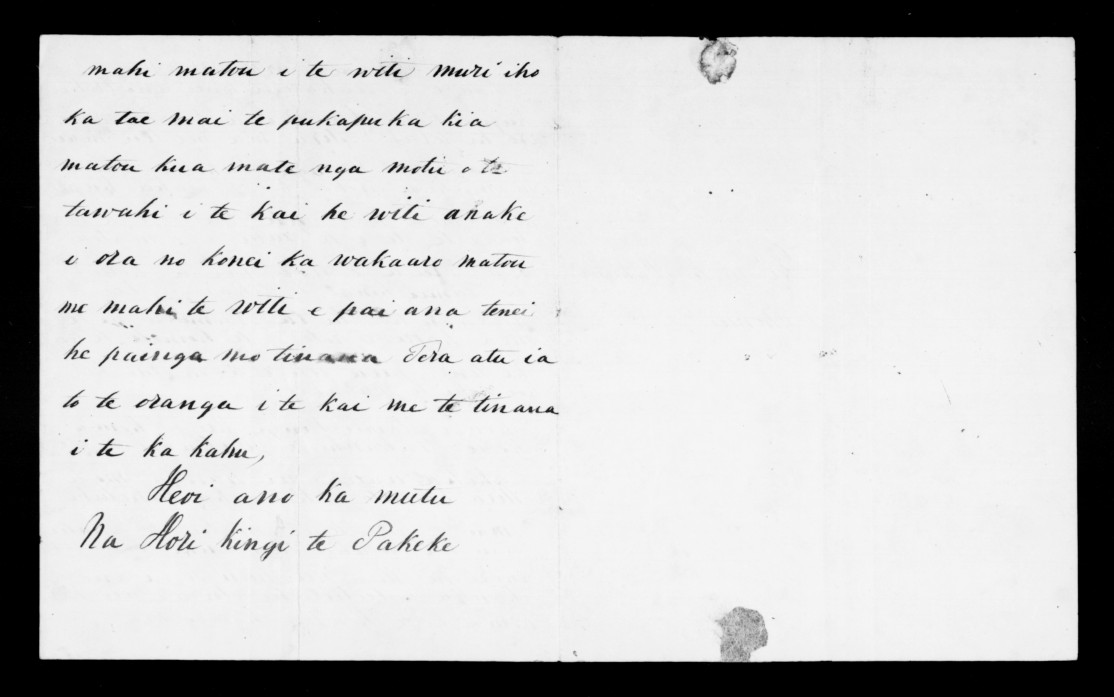 mahi matou i te witi muri iho
ka tae mai te pukapuka kia
matou kua mate nga motu o te
tawahi i te kai he witi anake
i ora no konei ka wakaaro matou
me mahi te witi e pai ana tenei
he painga mo tinana Tera atu ia
to te oranga i te kai me te tinana
i te ka kahu,
Heoi ano ka mutu
Na Hori kingi te Pakeke